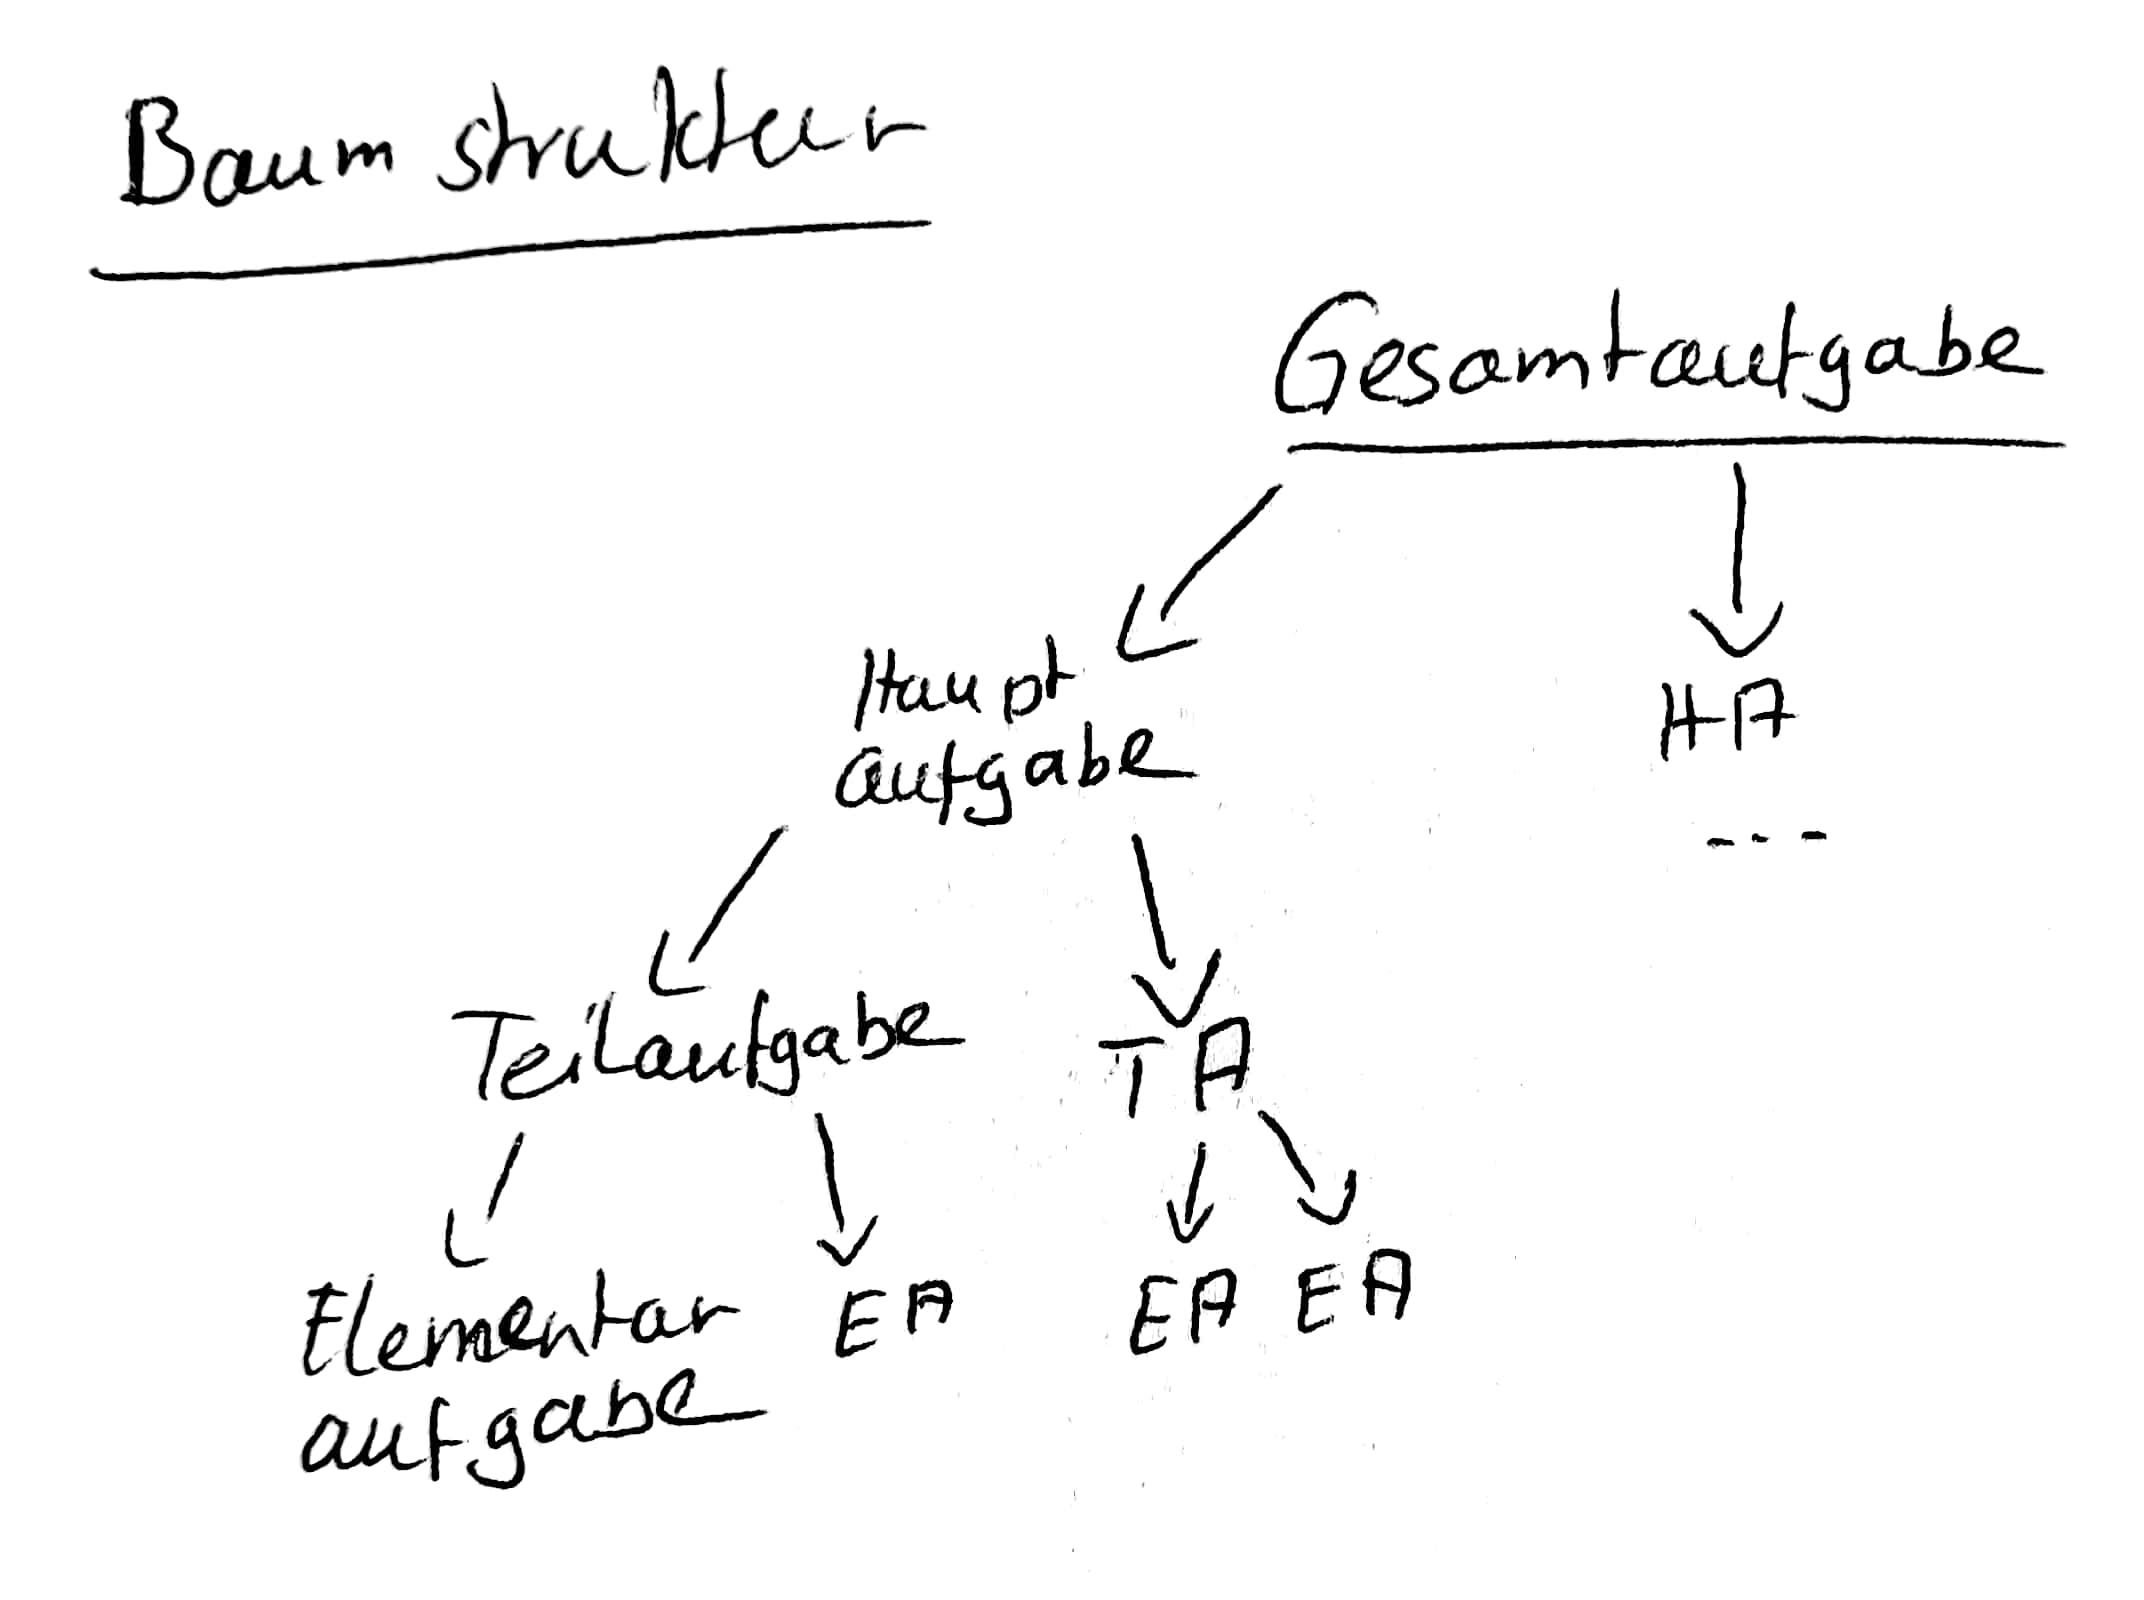 Baumstruktur
Gesamtaufgabe
Haupt
aufgabe
HA
---
Teilaufgabe
TA
Elementar
aufgabe
EA
EA
EA